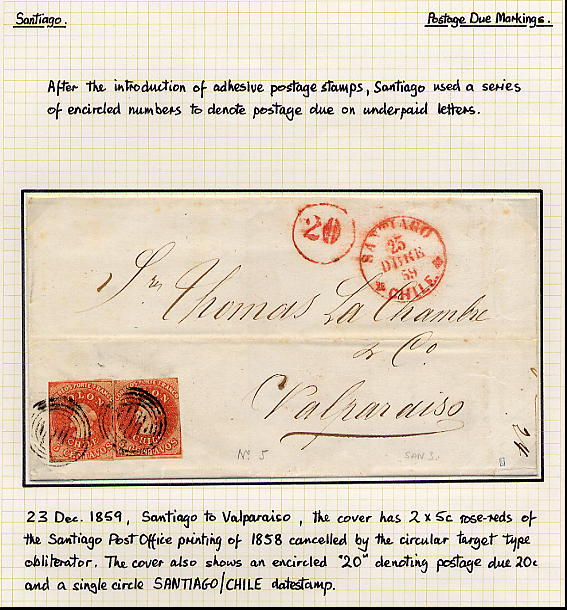 Santiago.
Postage Due Markings.
After the introduction of adhesive postage stamps, Santiago used a series
of encircled numbers to denote postage due on underpaid letters.
20
SANTIAGO
23
DBRE
59
CHILE.
Thomas La Chambre
& Co.
Valparaiso
COLON
CHILE
CENTAVOS
CHILE
CENTAVOS
Nº 5
SAN 3.
23 Dec. 1859, Santiago to Valparaiso, the cover has 2 x 5c rose-reds of
the Santiago Post Office printing of 1858 cancelled by the circular target type
obliterator. The cover also shows an encircled "20" denoting postage due 20c
and a single circle SANTIAGO/CHILE datestamp.